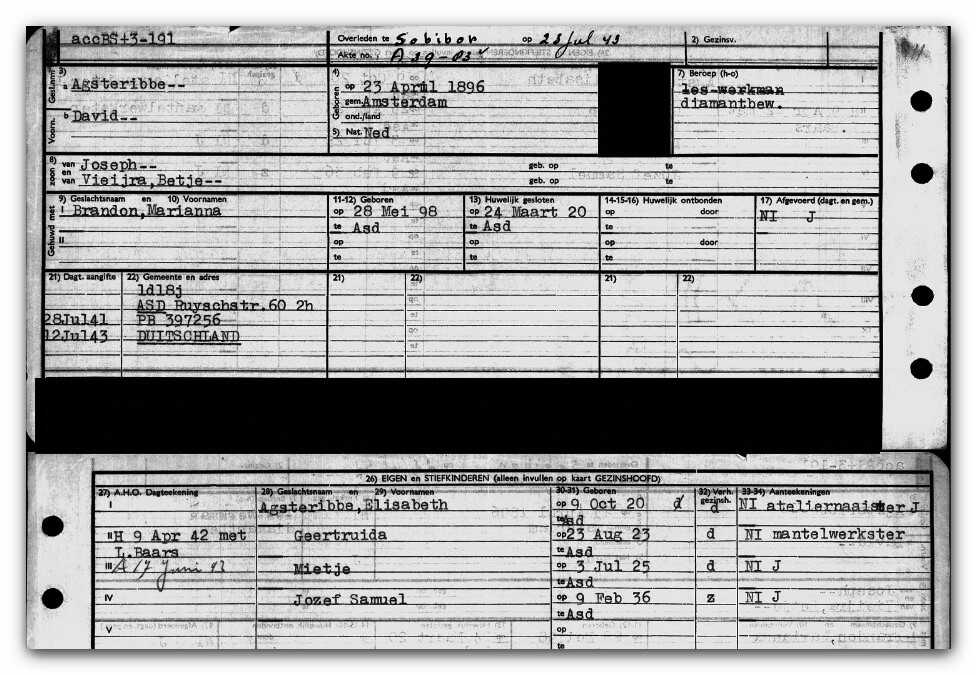 accBS+3-191
Overleden te Sobibor op 23 Jul 43
2) Gezinsv.
Akte no. : A 39-03
3) Geslachtsn.
a Agsteribbe--
4) Geboren
op 23 April 1896
gem. Amsterdam
ond./land
7) Beroep (h-o)
les-werkman
diamantbew.
Voorn.
b David--
5) Nat. Ned
8) zoon
van Joseph-- geb. op te
en
van Vieijra,Betje-- geb. op te
Gehuwd met
9) Geslachtsnaam en 10) Voornamen
I Brandon,Marianna
II
11-12) Geboren
op 28 Mei 98
te Asd
op
te
13) Huwelijk gesloten
op 24 Maart 20
te Asd
op
te
14-15-16) Huwelijk ontbonden
op door
te
op door
te
17) Afgevoerd (dagt. en gem.)
NI J
21) Dagt. aangifte 22) Gemeente en adres 21) 22) 21) 22)
1d18j
ASD Ruyschstr.60 2h
28Jul41 PB 397256
12Jul43 DUITSCHLAND
26) EIGEN en STIEFKINDEREN (alleen invullen op kaart GEZINSHOOFD)
27) A.H.O. Dagteekening 28) Geslachtsnaam en 29) Voornamen 30-31) Geboren 32) Verh. gezinsh. 33-34) Aanteekeningen
I Agsteribbe,Elisabeth op 9 Oct 20 d d NI ateliernaaister J
te Asd
II H 9 Apr 42 met Geertruida op 23 Aug 23 d NI mantelwerkster
L.Baars te Asd
III A 17 Juni 43 Mietje op 3 Jul 25 d NI J
te Asd
IV Jozef Samuel op 9 Feb 36 z NI J
te Asd
V op
te